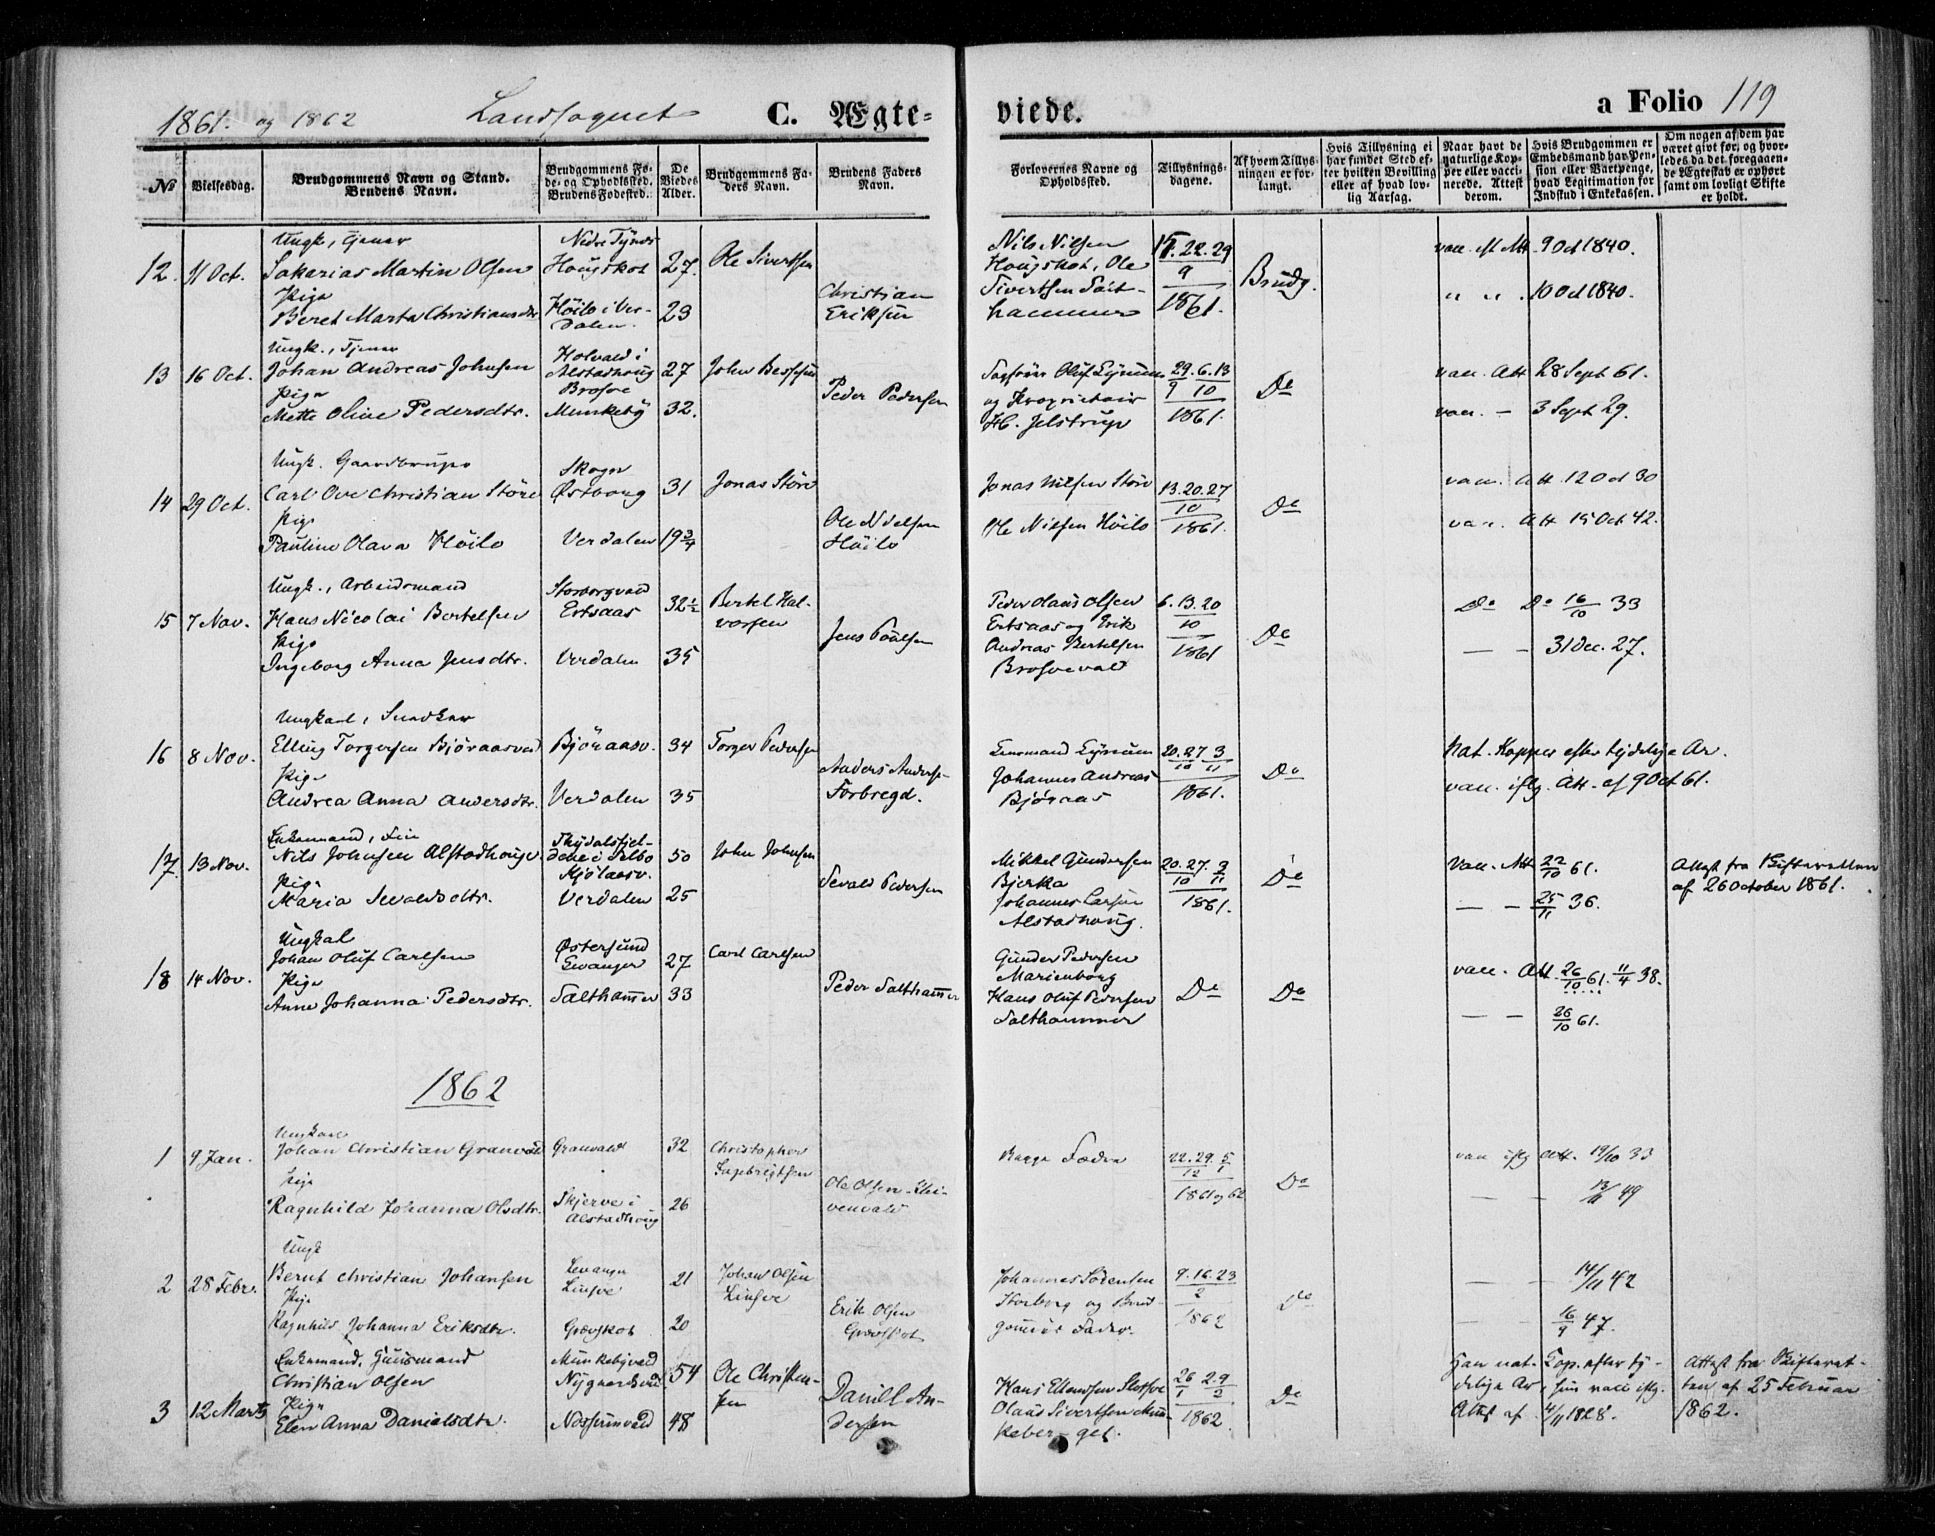 1861. og 1862 Landsognet C. Ægte- viede. a Folio 119
No
Vielsesdag.
Brudgommens Navn og Stand.
Brudens Navn.
Brudgommens Fø-
de- og Opholdssted.
Brudens Fødested.
De
Viedes
Alder.
Brudgommens Fa-
ders Navn.
Brudens Faders
Navn.
Forlovernes Navne og
Opholdssted.
Tillysnings-
dagene.
Af hvem Tillys-
ningen er for-
langt.
Hvis Tillysning ei
har fundet Sted ef-
ter hvilken Bevilling
eller af hvad lov-
lig Aarsag.
Naar havt de
naturlige Kop-
per eller vacci-
nerede. Attest
derom.
Hvis Brudgommen er
Embedsmand har Pen-
sion eller Vartpenge,
hvad Legitimation for
Indskud i Enkekassen.
Om nogen af dem har
været givt før, og hvor-
ledes da det foregaaen-
de Ægteskab er ophørt
samt om lovligt Skifte
er holdt.
12. 11 Oct.
Ungk., Tjener
Sakarias Martin Olsen
Pige
Beret Marta Christiansdtr
Nedre Tynes
Hougskot
Höilo i Ver-
dalen.
27.
23
Ole Sivertsen
Christian
Eriksen
Nils Nilsen
Hougskot, Ole
Sivertsen Salt-
hammer
15. 22. 29
9
1861.
Brudg.
vac. Att. 9 Oct 1840.
" " . 10 Oct 1840.
13 16 Oct.
Ungk., Tjener
Johan Andreas Johnsen
Pige
Mette Olive Pedersdtr.
Holvald i
Alstadhoug
Brosve
Munkeby
27
32.
John
Peder Pedersen
Sagfører Oluf Lynum
og Proprietair
H. Jelstrup
29. 6. 13
9 10
1861.
Do
vac. Att 28 Sept 61.
vac. — 3 Sept 29.
14 29 Oct.
Ungk. Gaardbruger
Carl Ove Christian Störe
Pige
Pauline Olava Höilo
Skogn
Østborg
Verdalen
31
19 3/4
Jonas Störe
Ole Nilsen
Höilo
Jonas Nilsen Störe
Ole Nilsen Höilo
13. 20. 27
10
1861.
Do
vac. Att. 12 Oct 30
vac. Att 15 Oct 42.
15 7 Nov.
Ungk., Arbeidsmand
Hans Nicolai Bertelsen
Pige
Ingeborg Anna Jensdtr.
Storborgvald
Ertsaas
Verdalen
32 1/2
35
Bertel Hal-
vorsen
Jens Poulsen
Peder Olaus Olsen
Ertsaas og Erik
Andreas Bertelsen
Brosvevald
6. 13. 20
10
1861
Do
Do Do 16/10 33
— — 31 Dec. 27.
16 8 Nov.
Ungkarl, Snedker
Elling Torgersen Björaasvald
Pige
Andrea Anna Andersdtr.
Björaasv.
Verdalen
34
35
Torger Pedersen
Anders Anders.
Forbregd.
Lensmand Lynum
Johannes Andreas
Björaas
20. 27. 3
10 11
1861.
Do
Nat. Kopper efter tydelige Ar.
vac. iflg. Att. af 9 Oct 61.
17. 13 Nov.
Enkemand,
Nils Johnsen Alstadhoug
Pige
Maria Sevaldsdtr.
Thydalsfjel-
dene i Selbo
Verdalen
50
25
John Johnsen
Sevald Pedersen
Mikkel Gundersen
Bjerka
Johannes Larsen
Alstadhoug.
20. 27. 3
10 11
1861.
Do
Vac. Att 22/10 61.
— — 25/11 36.
Attest fra Skifteretten
af 26 October 1861.
18 14 Nov.
Ungkal
Johan Oluf Carlsen
Pige
Anne Johanna Pedersdtr.
Østersund
Levanger
Salthamer
27
33
Carl Carlsen
Peder Salthamer
Gunder Pedersen
Marienborg
Hans Oluf Pedersen
Salthammer
Do
Do
vac. Att. 26/10 61. 11/4 38.
— — 26/10 61.
1862
1 9 Jan.
Ungkarl
Johan Christian Granvald
Pige
Ragnhild Johanna Olsdtr.
Granvald
Skjerve i
Alstadhoug
32
26
Christopher
Ingebrigtsen
Ole Olsen
Begge Fædre
22. 29. 5
12 1
1861 og 62
Do
vac iflg Att. 19/10 33
— — 49
2 28 Febr.
Ungk
Bernt Christian Johansen
Pige
Ragnhild Johanna Eriksdtr.
Levanger
Linsve
Grævskot
21
20
Johan Olsen
Linsve
Erik Olsen
Grævskot
Johannes Sörensen
Storborg og Brud-
gomens Fader.
9. 16. 23
2
1862
Do
— — 14/11 42
16/9 47.
3 12 Marts
Enkemand, Huusmand
Christian Olsen
Pige
Elen Anna Danielsdtr.
Munkebyvald
Nygaardsvald
54
48
Ole Christen-
sen
Daniel An-
dersen
Hans Ellendsen
Olaus Sivertsen Mun-
keber-get.
26 2. 9
1 2
1862
Do
Han nat. Kop. efter ty-
delige Ar, hun vacc iflg.
Attst af 4/11 1828.
Attest fra Skifteret-
ten af 25 Februar
1862.